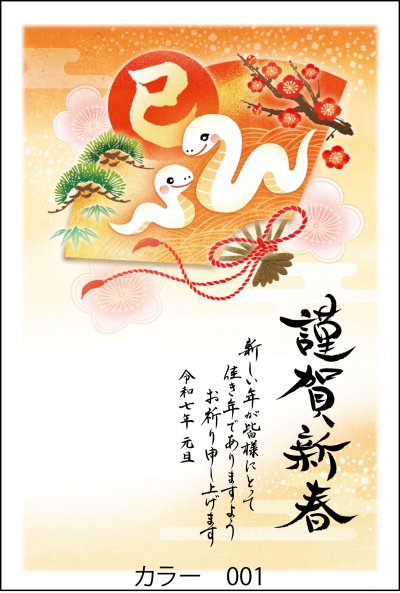 巳
謹賀新春
新しい年が皆様にとって
佳き年でありますよう
お祈り申し上げます
令和七年 元旦
カラー 001